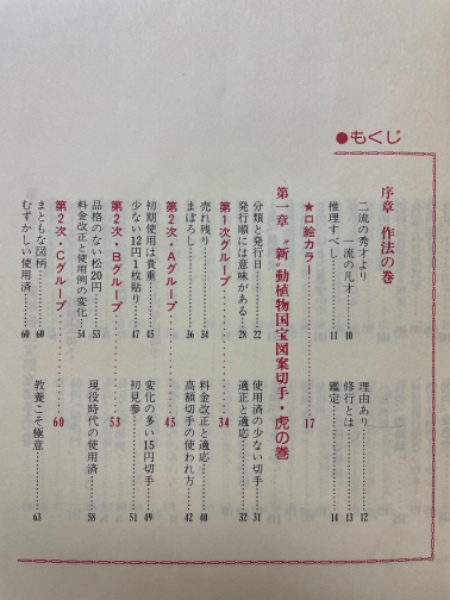 ●もくじ
序章 作法の巻
二流の秀才より
一流の凡才……10
推理すべし……11
理由あり……12
修行とは……13
鑑定……14
★口絵カラー……17
第一章 〝新〟動植物国宝図案切手・虎の巻
分類と発行日……22
発行順には意味がある……28
使用済の少ない切手……31
適正と適応……32
第1次グループ……34
売れ残り……34
まぼろし……36
料金改正と適応……40
高額切手の使われ方……42
第2次・Aグループ……45
初期使用は貴重……45
少ない12円1枚貼り……47
変化の多い15円切手……49
初見参……51
第2次・Bグループ……53
品格のない松20円……53
料金改正と使用例の変化……54
現役時代の使用済……58
第2次・Cグループ……60
まともな図柄……60
むずかしい使用済……60
教養こそ極意……63